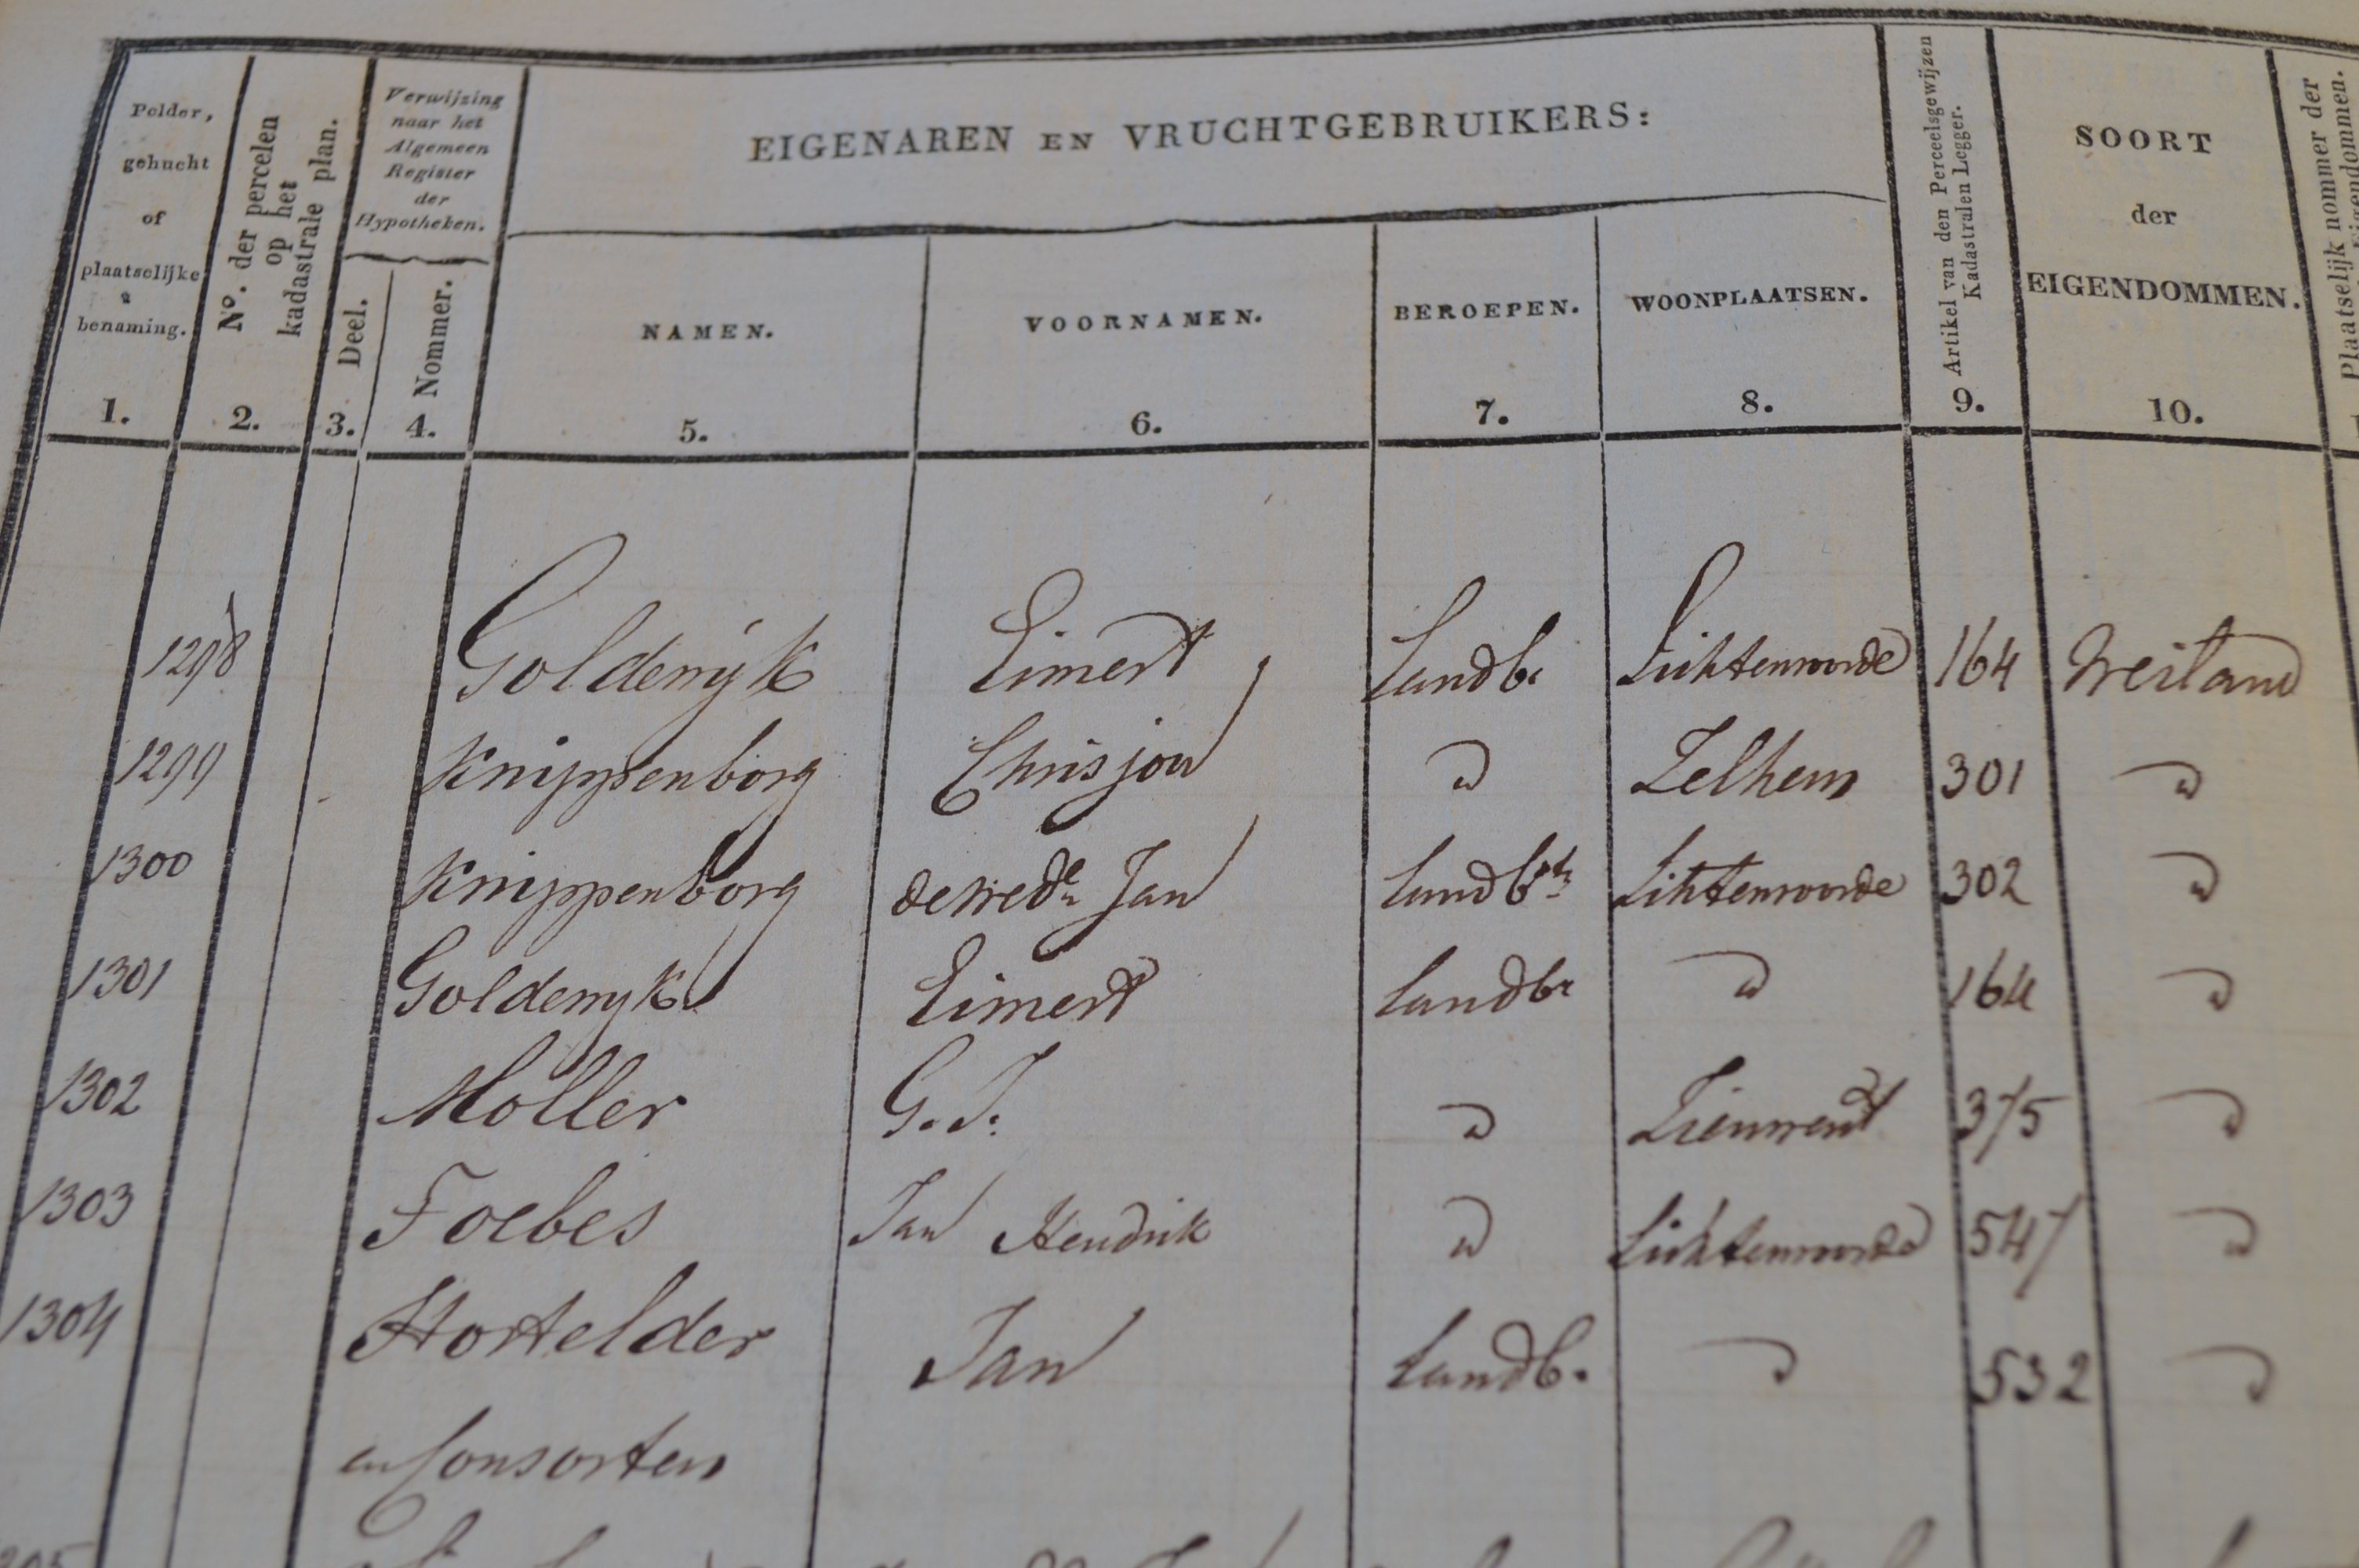 EIGENAREN EN VRUCHTGEBRUIKERS:
Polder,
gehucht
of
plaatselijke
benaming.
1.
No. der percelen
op het
kadastrale plan.
2.
Verwijzing
naar het
Algemeen
Register
der
Hypotheken.
Deel.
3.
Nommer.
4.
NAMEN.
5.
VOORNAMEN.
6.
BEROEPEN.
7.
WOONPLAATSEN.
8.
Artikel van den Perceelsgewijzen
Kadastralen Legger.
9.
SOORT
der
EIGENDOMMEN.
10.
Plaatselijk nommer der
Eigendommen.
1298 Goldenijk Eimert Landbr Lichtenvoorde 164 Weiland
1299 Knippenborg Chrisjan " Zelhem 301 "
1300 Knippenborg de wede Jan Landb Lichtenvoorde 302 "
1301 Goldenyk Eimert Landbr " 164 "
1302 Moller G. J. " Zieuwent 375 "
1303 Foebes Jan Hendrik " Lichtenvoorde 547 "
1304 Hortelder Jan Landb. " 532 "
en Consorten